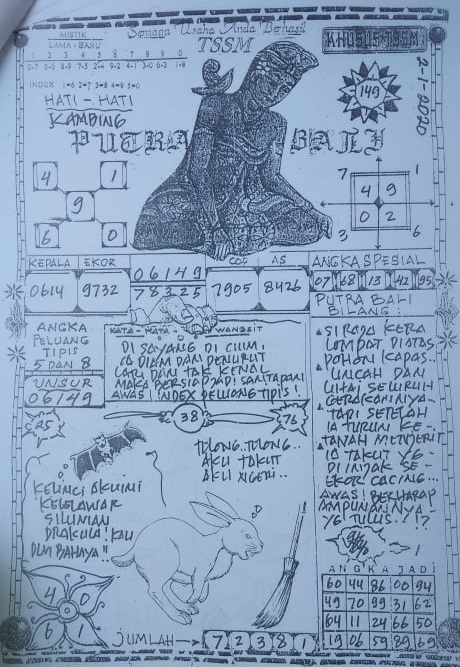 Semoga Usaha Anda Berhasil
TSSM
KHUSUS TSSM
MISTIK
LAMA - BARU
1 2 3 4 5 6 7 8 9 0
INDEX 1=6 2=7 3=8 4=9 5=0
HATI - HATI
KAMBING
2-1-2020
149
PUTRA BALI
4 1
9
6 0
7 1
4 9
0 2
3 6
KEPALA EKOR
0614 9732
06149
78325
COP AS
7905 8426
ANGKA SPESIAL
07 68 13 42 95
ANGKA
PELUANG
TIPIS
5 DAN 8
UNSUR
06149
KATA - KATA WANGSIT
DI SAYANG DI CIUM,
IA DIAM DAN PENURUT
LARI DAN TAK KENAL
MAKA BERSIAP JADI SANTAPAN
AWAS! INDEX PELUANG TIPIS!
PUTRA BALI
BILANG:
SI RAJA KERA
LOMPAT DI ATAS
POHON KAPAS..
LINCAH DAN
LIHAI SELURUH
GERAKANNYA..
TAPI SETELAH
IA TURUN KE-
TANAH MENJERIT
IA TAKUT YG-
DI INJAK SE-
EKOR CACING...
AWAS! BERHARAP
AMPUNANNYA!
YG TULUS..!!?
25
38
76
TOLONG..TOLONG..
AKU TAKUT
AKU NGERI..
KELINCI AKU INI
KELELAWAR
SILUMAN
DRAKULA! KAU
DLM BAHAYA!!
4 0
6 1
JUMLAH 7 2 3 8 1
ANGKA JADI
60 44 86 00 94
49 70 99 31 62
64 11 24 66 50
19 06 59 89 69